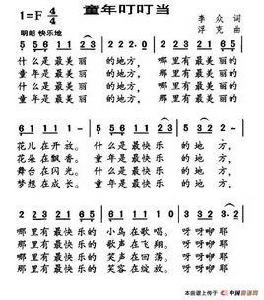 童年叮叮当
1=F 4/4
李众 词
明朗 快乐地
曲
5 5 6 1 1 2 3 | 2 2 2 . 0 | 2 2 2 3 2 1 6 5 |
什么是最美丽 的地方, 哪里有最美丽的
童年是最美丽 的地方, 哪里有最美丽的
6 1 1 1 - | 5 5 6 1 1 2 3 | 2 2 2 - |
花儿在开放。 什么是最快乐 的地方,
花朵在飘香。 童年是最快乐 的地方,
舞台在闪光。 什么是最快乐 的地方,
梦想在成长。 童年是最快乐 的地方,
2 2 2 3 2 1 6 5 | 6 1 1 1 - | 3 2
哪里有最快乐的 小鸟在歌唱。 呀呀咿耶
哪里有最快乐的 歌声在飞翔。 呀呀咿耶
哪里有最快乐的 笑声在回荡。 呀呀咿耶
哪里有最快乐的 笑容在绽放。 呀呀咿耶
本曲谱上传于 中国曲谱网